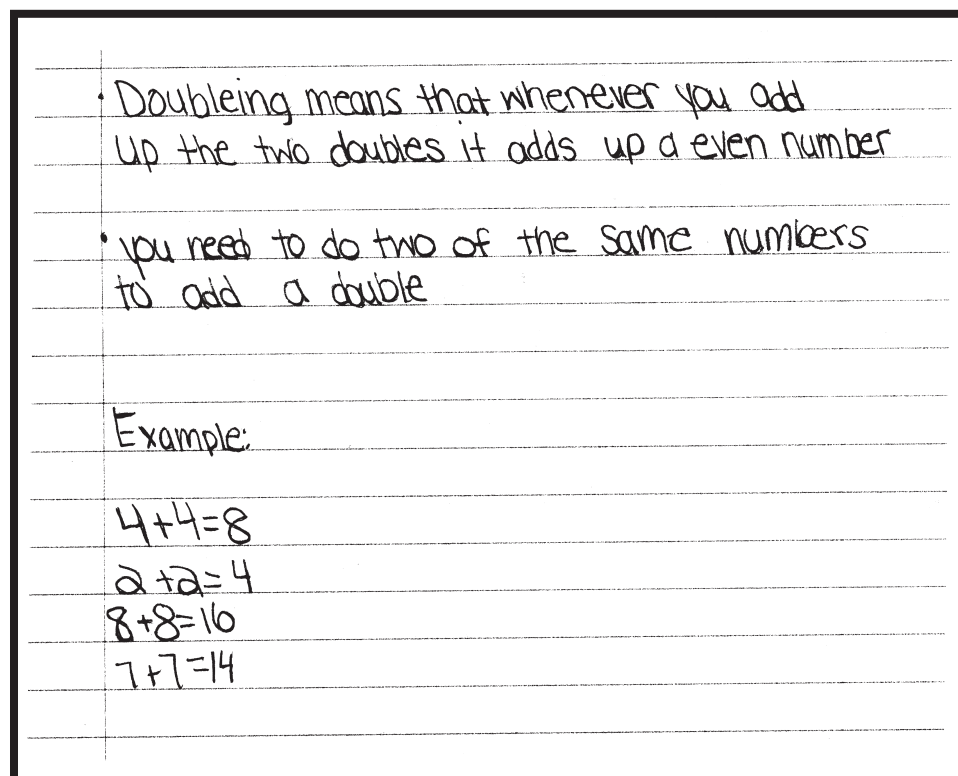 • Doubleing means that whenever you add
up the two doubles it adds up a even number
• you need to do two of the same numbers
to add a double
Example:
4+4=8
2+2=4
8+8=16
7+7=14